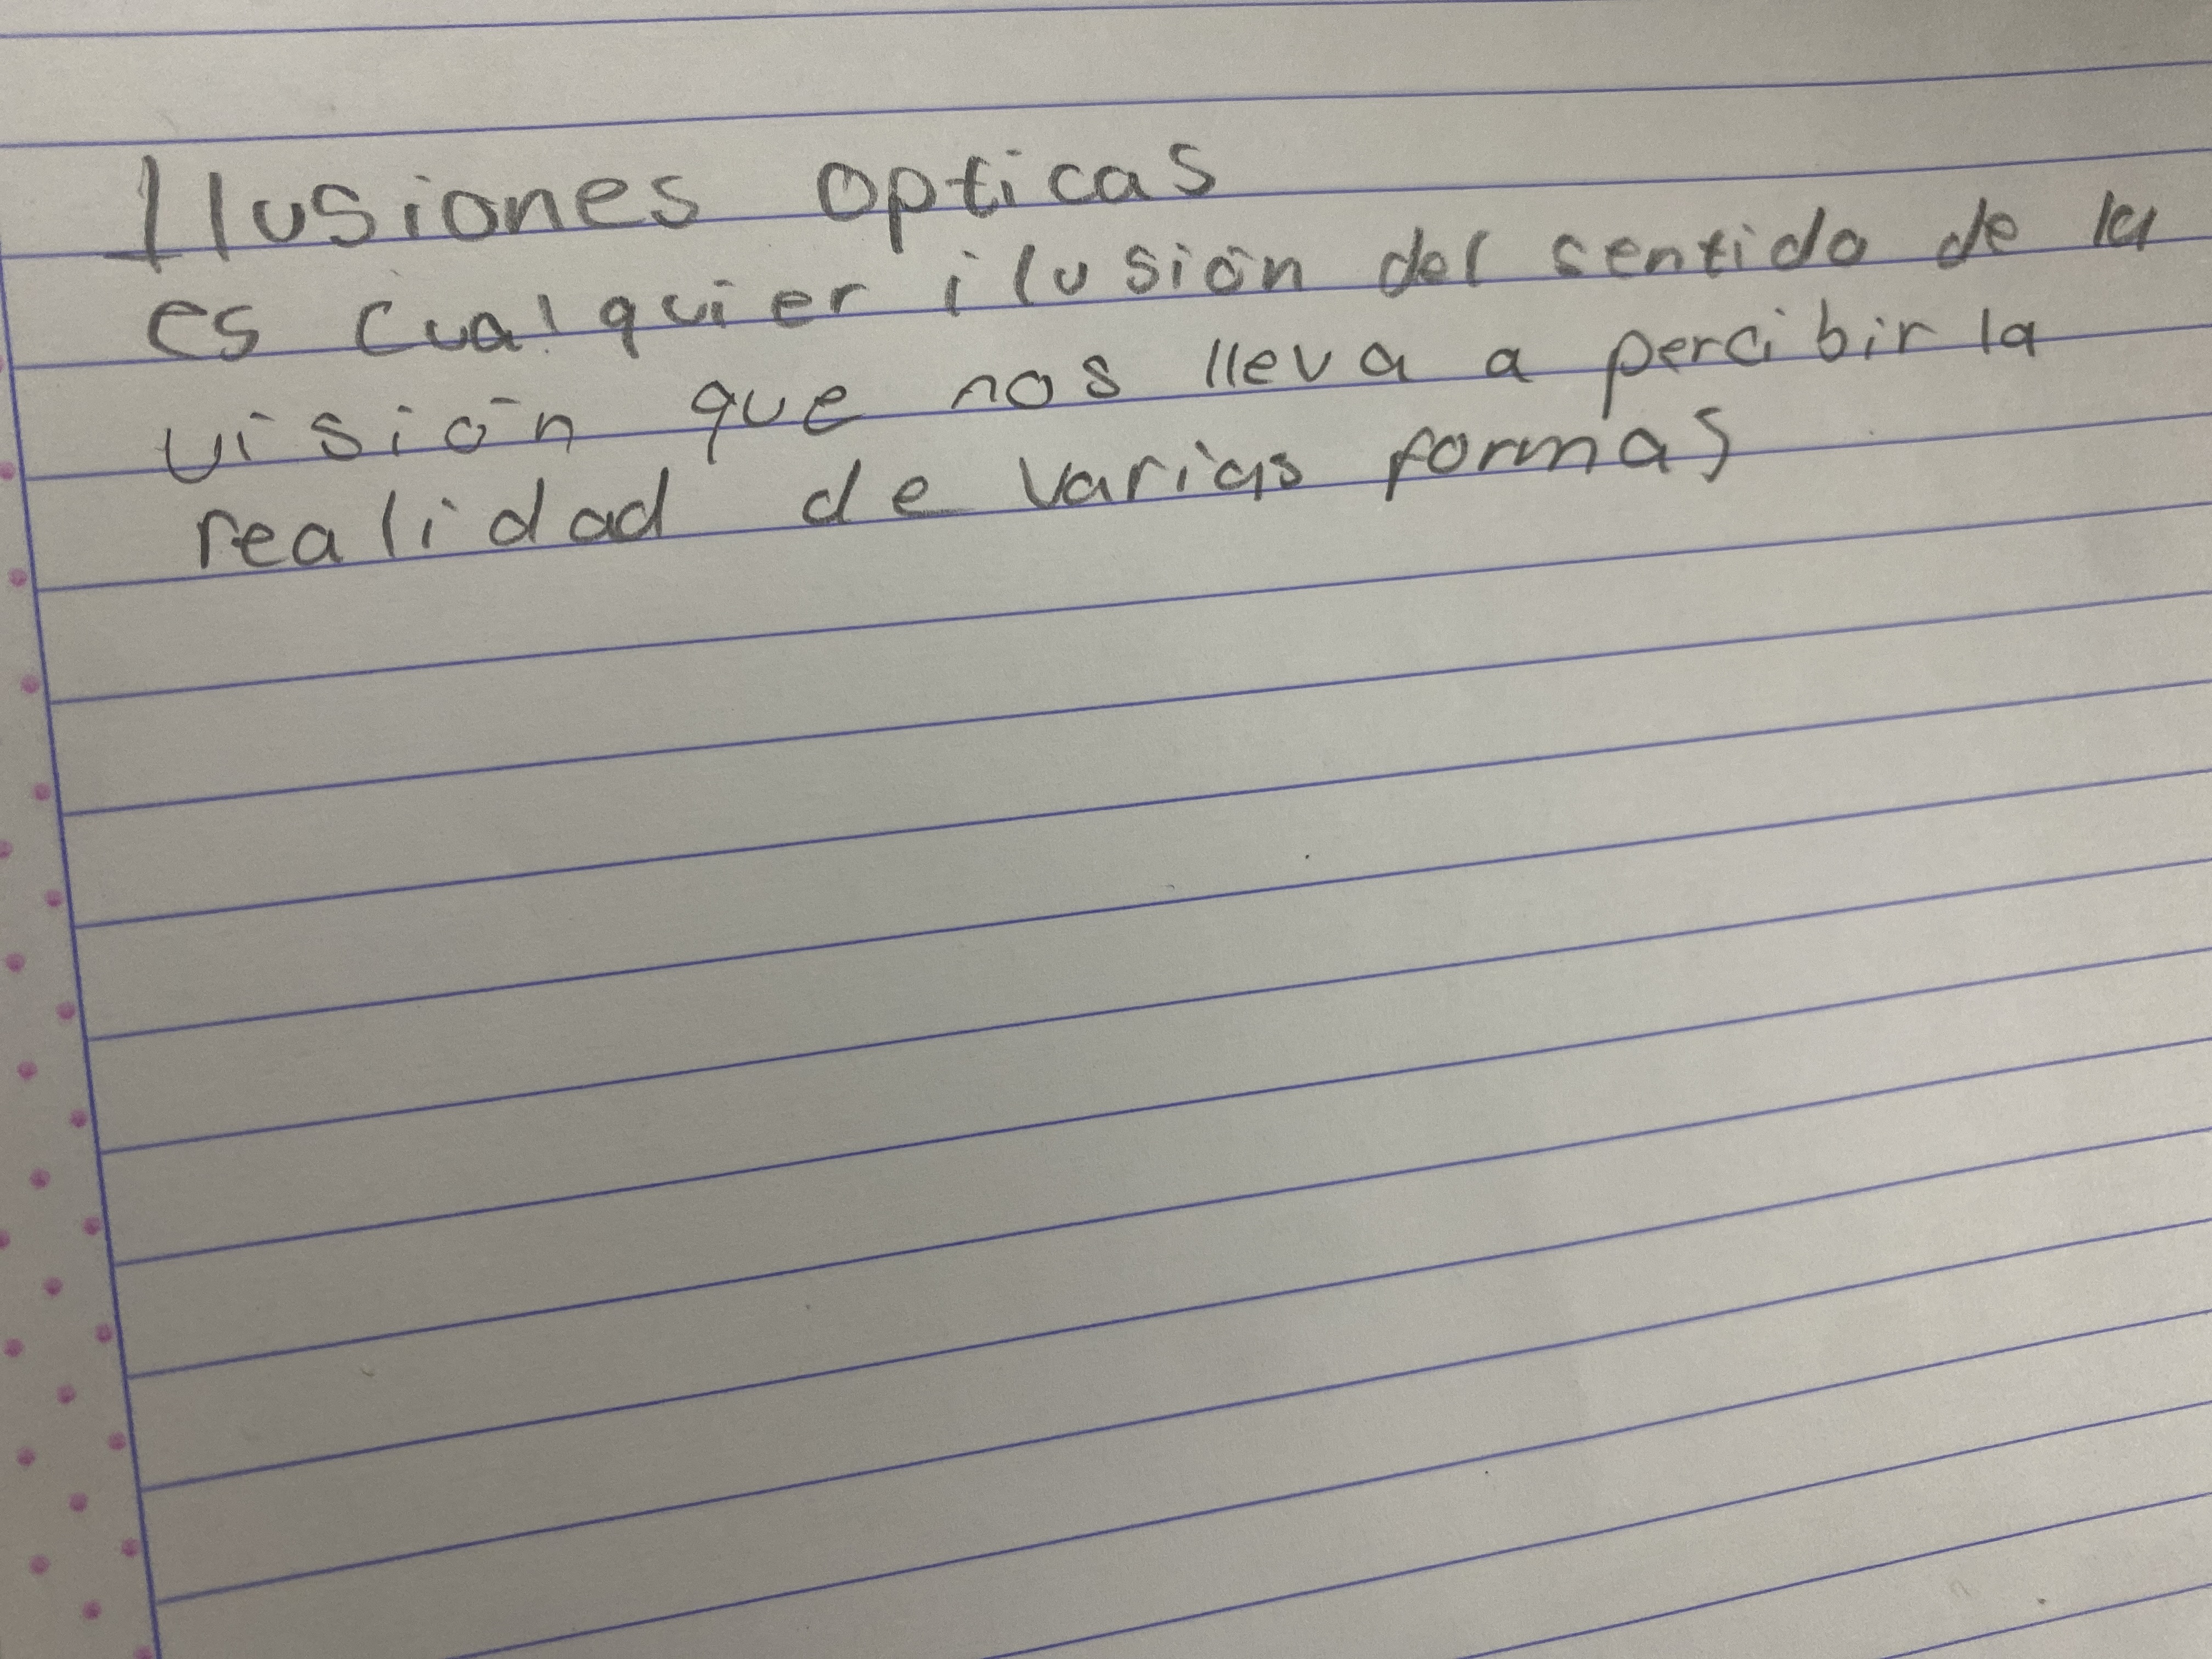 Ilusiones opticas
es cualquier ilusión del sentido de la
visión que nos lleva a percibir la
realidad de varias formas